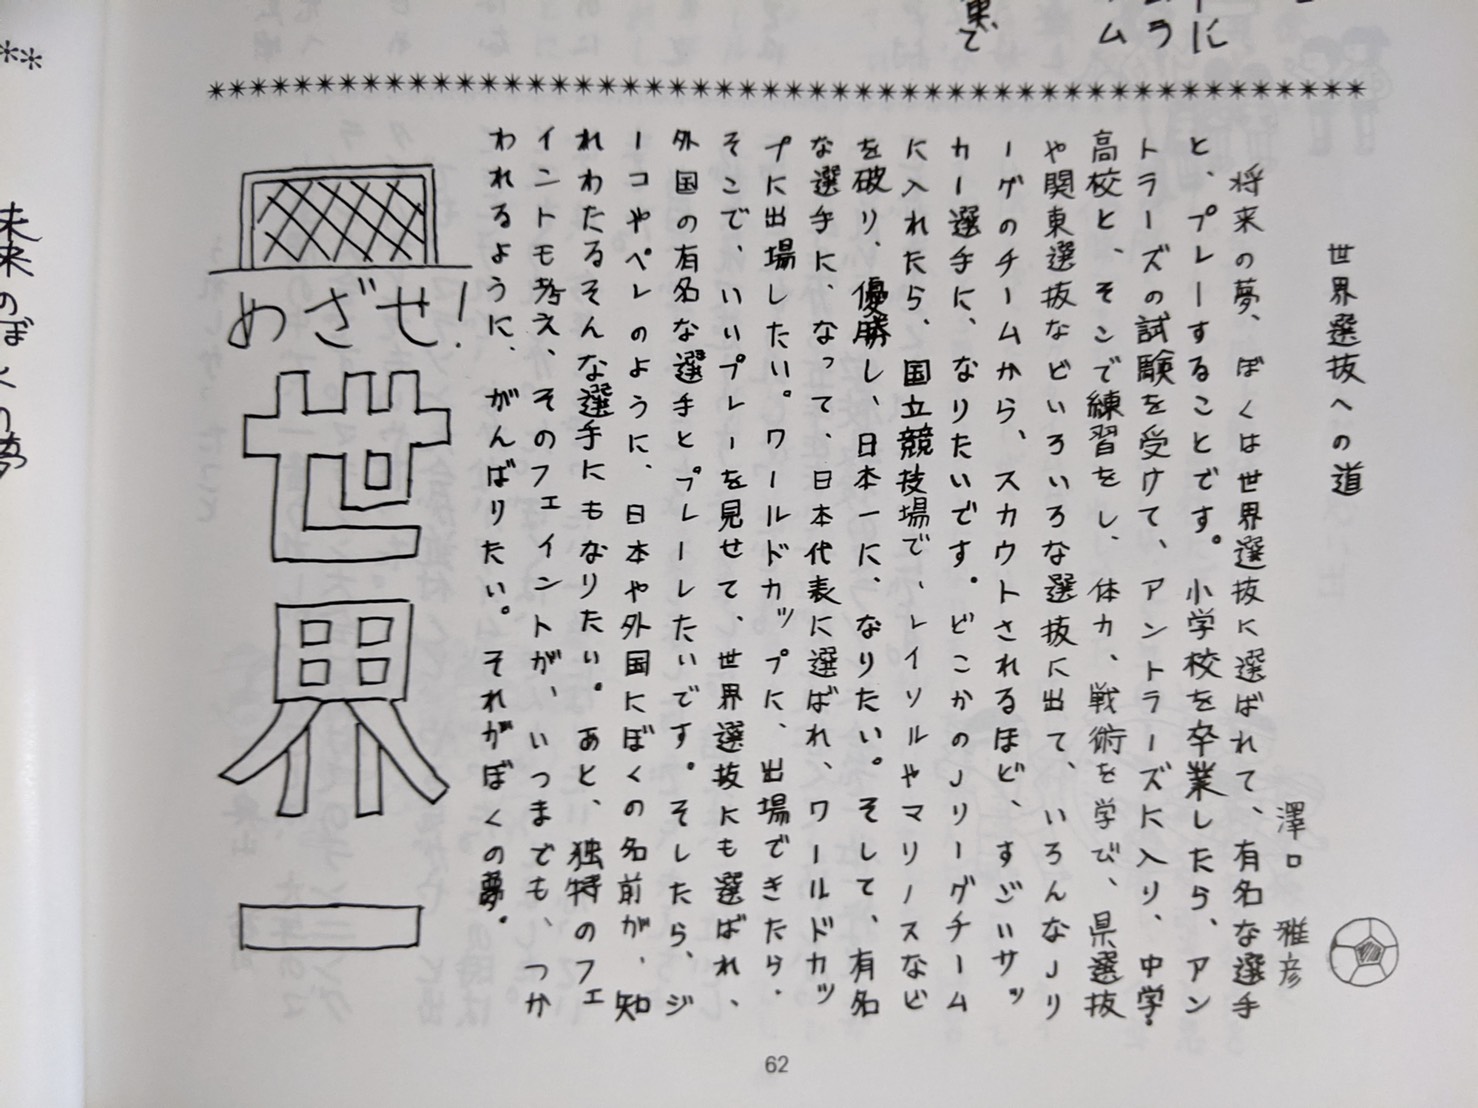 世界選抜への道
澤口 雅彦
将来の夢、ぼくは世界選抜に選ばれて、有名な選手
と、プレーすることです。小学校を卒業したら、アン
トラーズの試験を受けて、アントラーズに入り、中学・
高校と、そこで練習をし、体力、戦術を学び、県選抜
や関東選抜などいろいろな選抜に出て、いろんなJリ
ーグのチームから、スカウトされるほど、すごいサッ
カー選手に、なりたいです。どこかのJリーグチーム
に入れたら、国立競技場で、レイソルやマリノスなど
を破り、優勝し、日本一に、なりたい。そして、有名
な選手に、なって、日本代表に選ばれ、ワールドカッ
プに出場したい。ワールドカップに、出場できたら、
そこで、いいプレーを見せて、世界選抜にも選ばれ、
外国の有名な選手とプレーしたいです。そしたら、ジ
ーコやペレのように、日本や外国にぼくの名前が、知
れわたるそんな選手にもなりたい。あと、独特のフェ
イントも考え、そのフェイントが、いつまでも、つか
われるように、がんばりたい。それがぼくの夢。
めざせ!
世界一
62